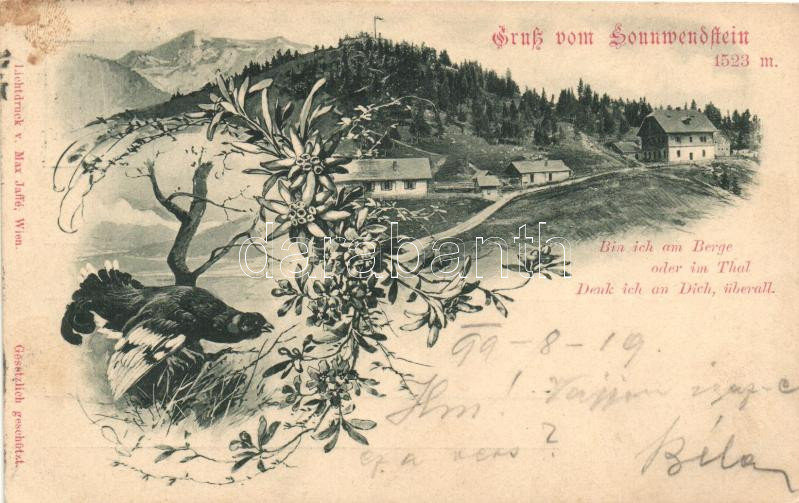 Gruß vom Sonnwendstein
1523 m.
Lichtdruck v. Max Jaffé, Wien.
Gesetzlich geschützt.
darabanth
Bin ich am Berge
oder im Thal
Denk ich an Dich, überall.
99-8-19
Hm! Vajjon igaz-e
ez a vers?
Béla